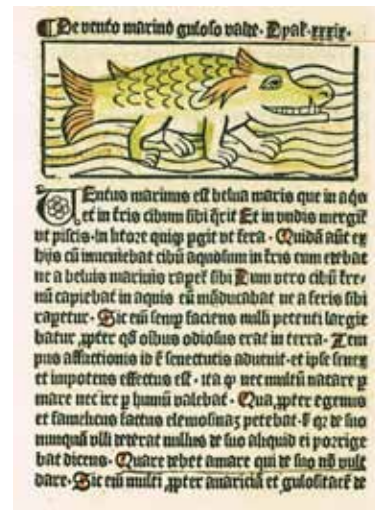 De vento marino guloso valde. Dyal. xxxix.
VEntus marinus est belua maris que in aq̄s
et in t̄ris cibum sibi q̄rit Et in vndis mergit̄
vt piscis. in litore quiꝗ pgit vt fera. Quidā aūt ex
hijs cū inueniebat cibū aquosum in t̄ris eum edebat
ne a beluis marinis raper̄ sibi Dum vero cibū t̄re-
num capiebat in aquis eū māducabat ne a feris sibi
rapetur. Sic em̄ semꝑ faciens nulli petenti largie
batur ꝓpter qđ oībus odiosus erat in terra. Tem
pus afflictionis id ē senectutis aduenit. et ipse senex
et impotens effectus est. ita ꝙ nec multū natare ꝑ
mare nec ire ꝑ humū valebat. Qua ꝓpter egenus
et famelicus factus elemosinaʒ petebat. qꝛ de suo
nunquā vlli dederat nullus de suo aliquid ei porrige
bat dicens. Quare debet amare qui de suo nō vult
dare. Sic em̄ multi ꝓpter auariciā et gulositatē de